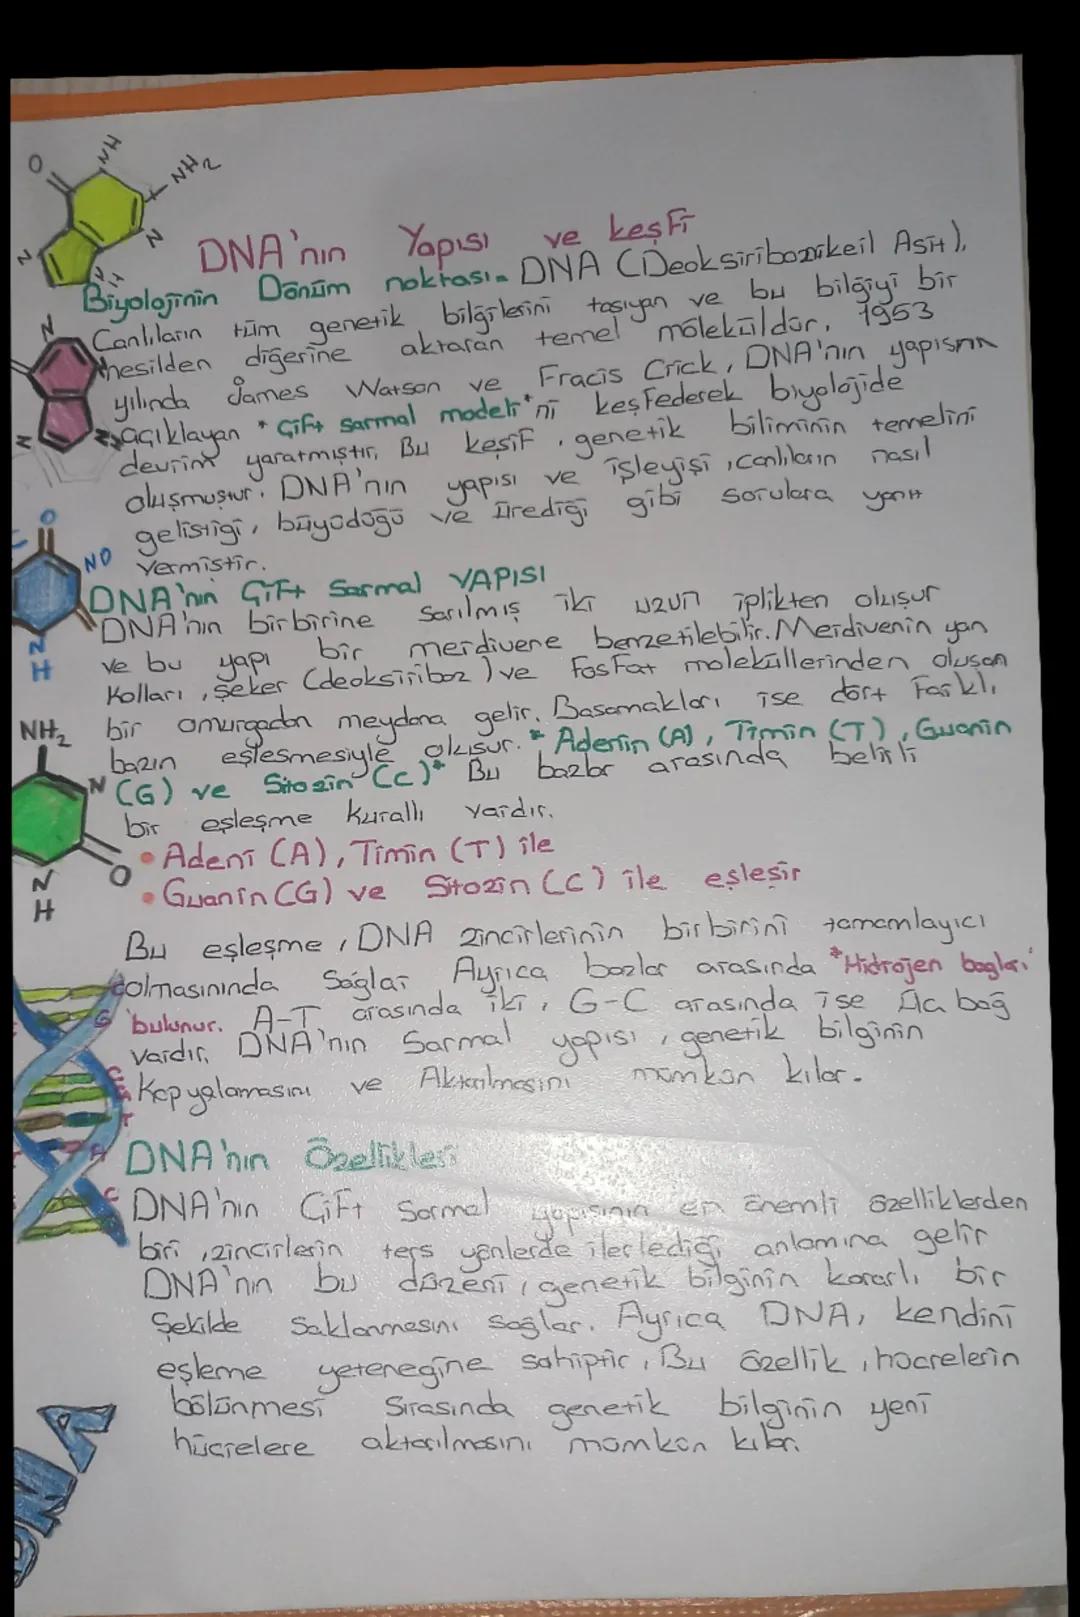 O
NH
NH2
N
N
H
DNA'nın Yapısı ve keşfi
Biyolojinin Dönüm noktası- DNA (Deoksiribonükeil Asit),
Canlıların tüm genetik bilgilerini taşıyan ve bu bilgiyi bir
nesilden diğerine aktaran temel moleküldür. 1953
yılında James Watson ve Fracis Crick, DNA'nın yapısını
açıklayan "Çift sarmal modeli"ni keşfederek biyolojide
devrim yaratmıştır, Bu keşif, genetik biliminin temelini
oluşmuştur. DNA'nın yapısı ve işleyişi, canlıların nasıl
geliştiği, büyüdüğü ve ürediği gibi sorulara yanıt
vermiştir.
N
N
O
NO
N
H
DNA'nın Çift Sarmal YAPISI
DNA'nın birbirine sarılmış iki uzun iplikten oluşur
ve bu yapı bir merdivene benzetilebilir. Merdivenin yan
Kolları, şeker (deoksiriboz) ve fosfat moleküllerinden oluşan
bir omurgadan meydana gelir. Basamakları ise dört farklı
bazın eşleşmesiyle oluşur. * Adenin (A), Timin (T), Guanin
(G) ve Sitozin (C)* Bu bazlar arasında belirli
bir eşleşme kurallı vardır.
• Adeni (A), Timin (T) ile
• Guanin (G) ve Sitozin (C) ile eşleşir
NH2
N
O
N
H
Bu eşleşme, DNA zincirlerinin birbirini tamamlayıcı
olmasınında Sağlar Ayrıca bazlar arasında "Hidrojen bağları"
bulunur. A-T arasında iki, G-C arasında ise Üç bağ
vardır, DNA'nın Sarmal yapısı, genetik bilginin
Kopyalamasını ve Aktarılmasını mümkün kılar.
G
C
G
T
A
C
DNA'nın Özellikleri
DNA'nın Çift Sarmal yapısının en önemli özelliklerden
biri, zincirlerin ters yönlerde ilerlediği anlamına gelir
DNA'nın bu düzeni, genetik bilginin kararlı bir
Şekilde Saklanmasını sağlar. Ayrıca DNA, kendini
eşleme yeteneğine sahiptir, Bu özellik, hücrelerin
bölünmesi Sırasında genetik bilginin yeni
hücrelere aktarılmasını mümkün kılar.